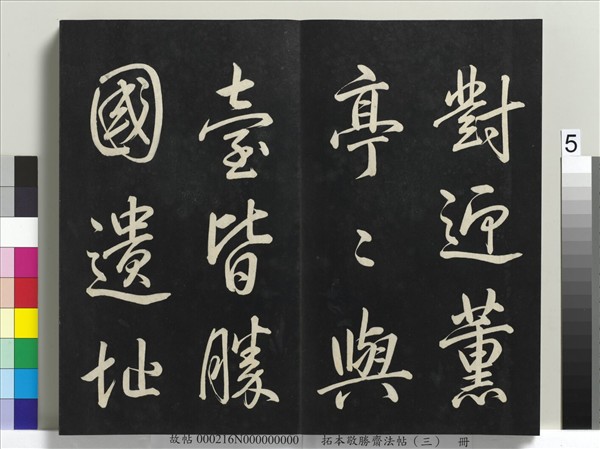 對迎薰
亭〻與
臺皆勝
國遺址
5
故帖 000216N000000000 拓本敬勝齋法帖（三） 冊